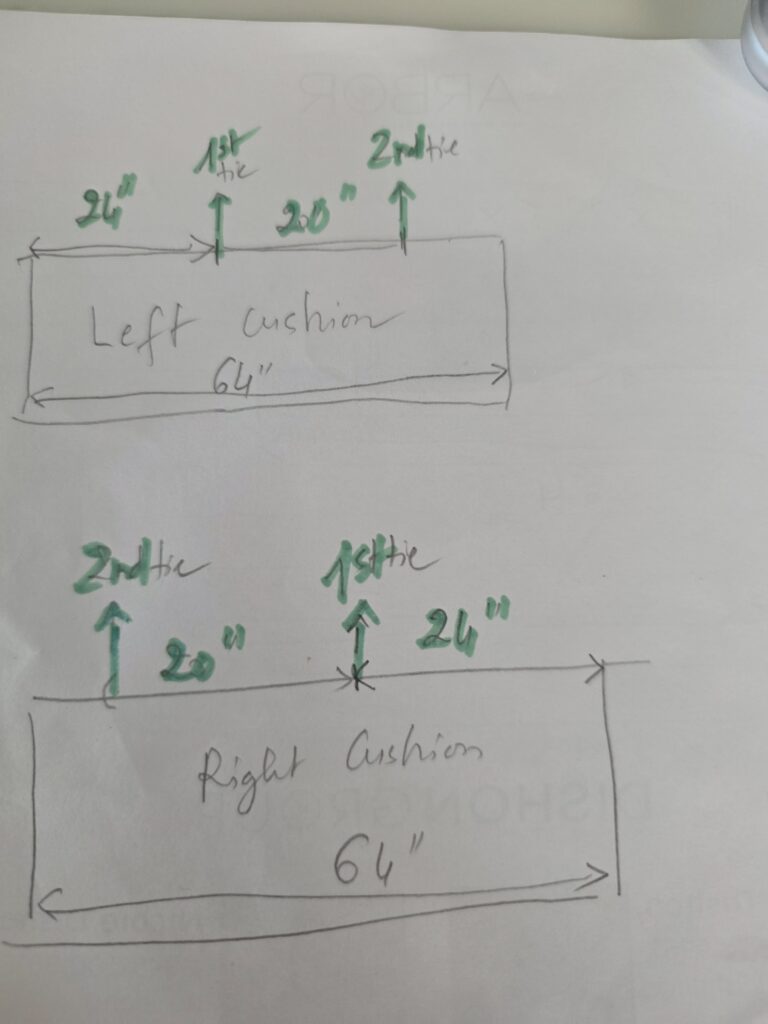 1st tie
2nd tie
24"
20"
Left Cushion
64"
2nd tie
1st tie
20"
24"
Right Cushion
64"